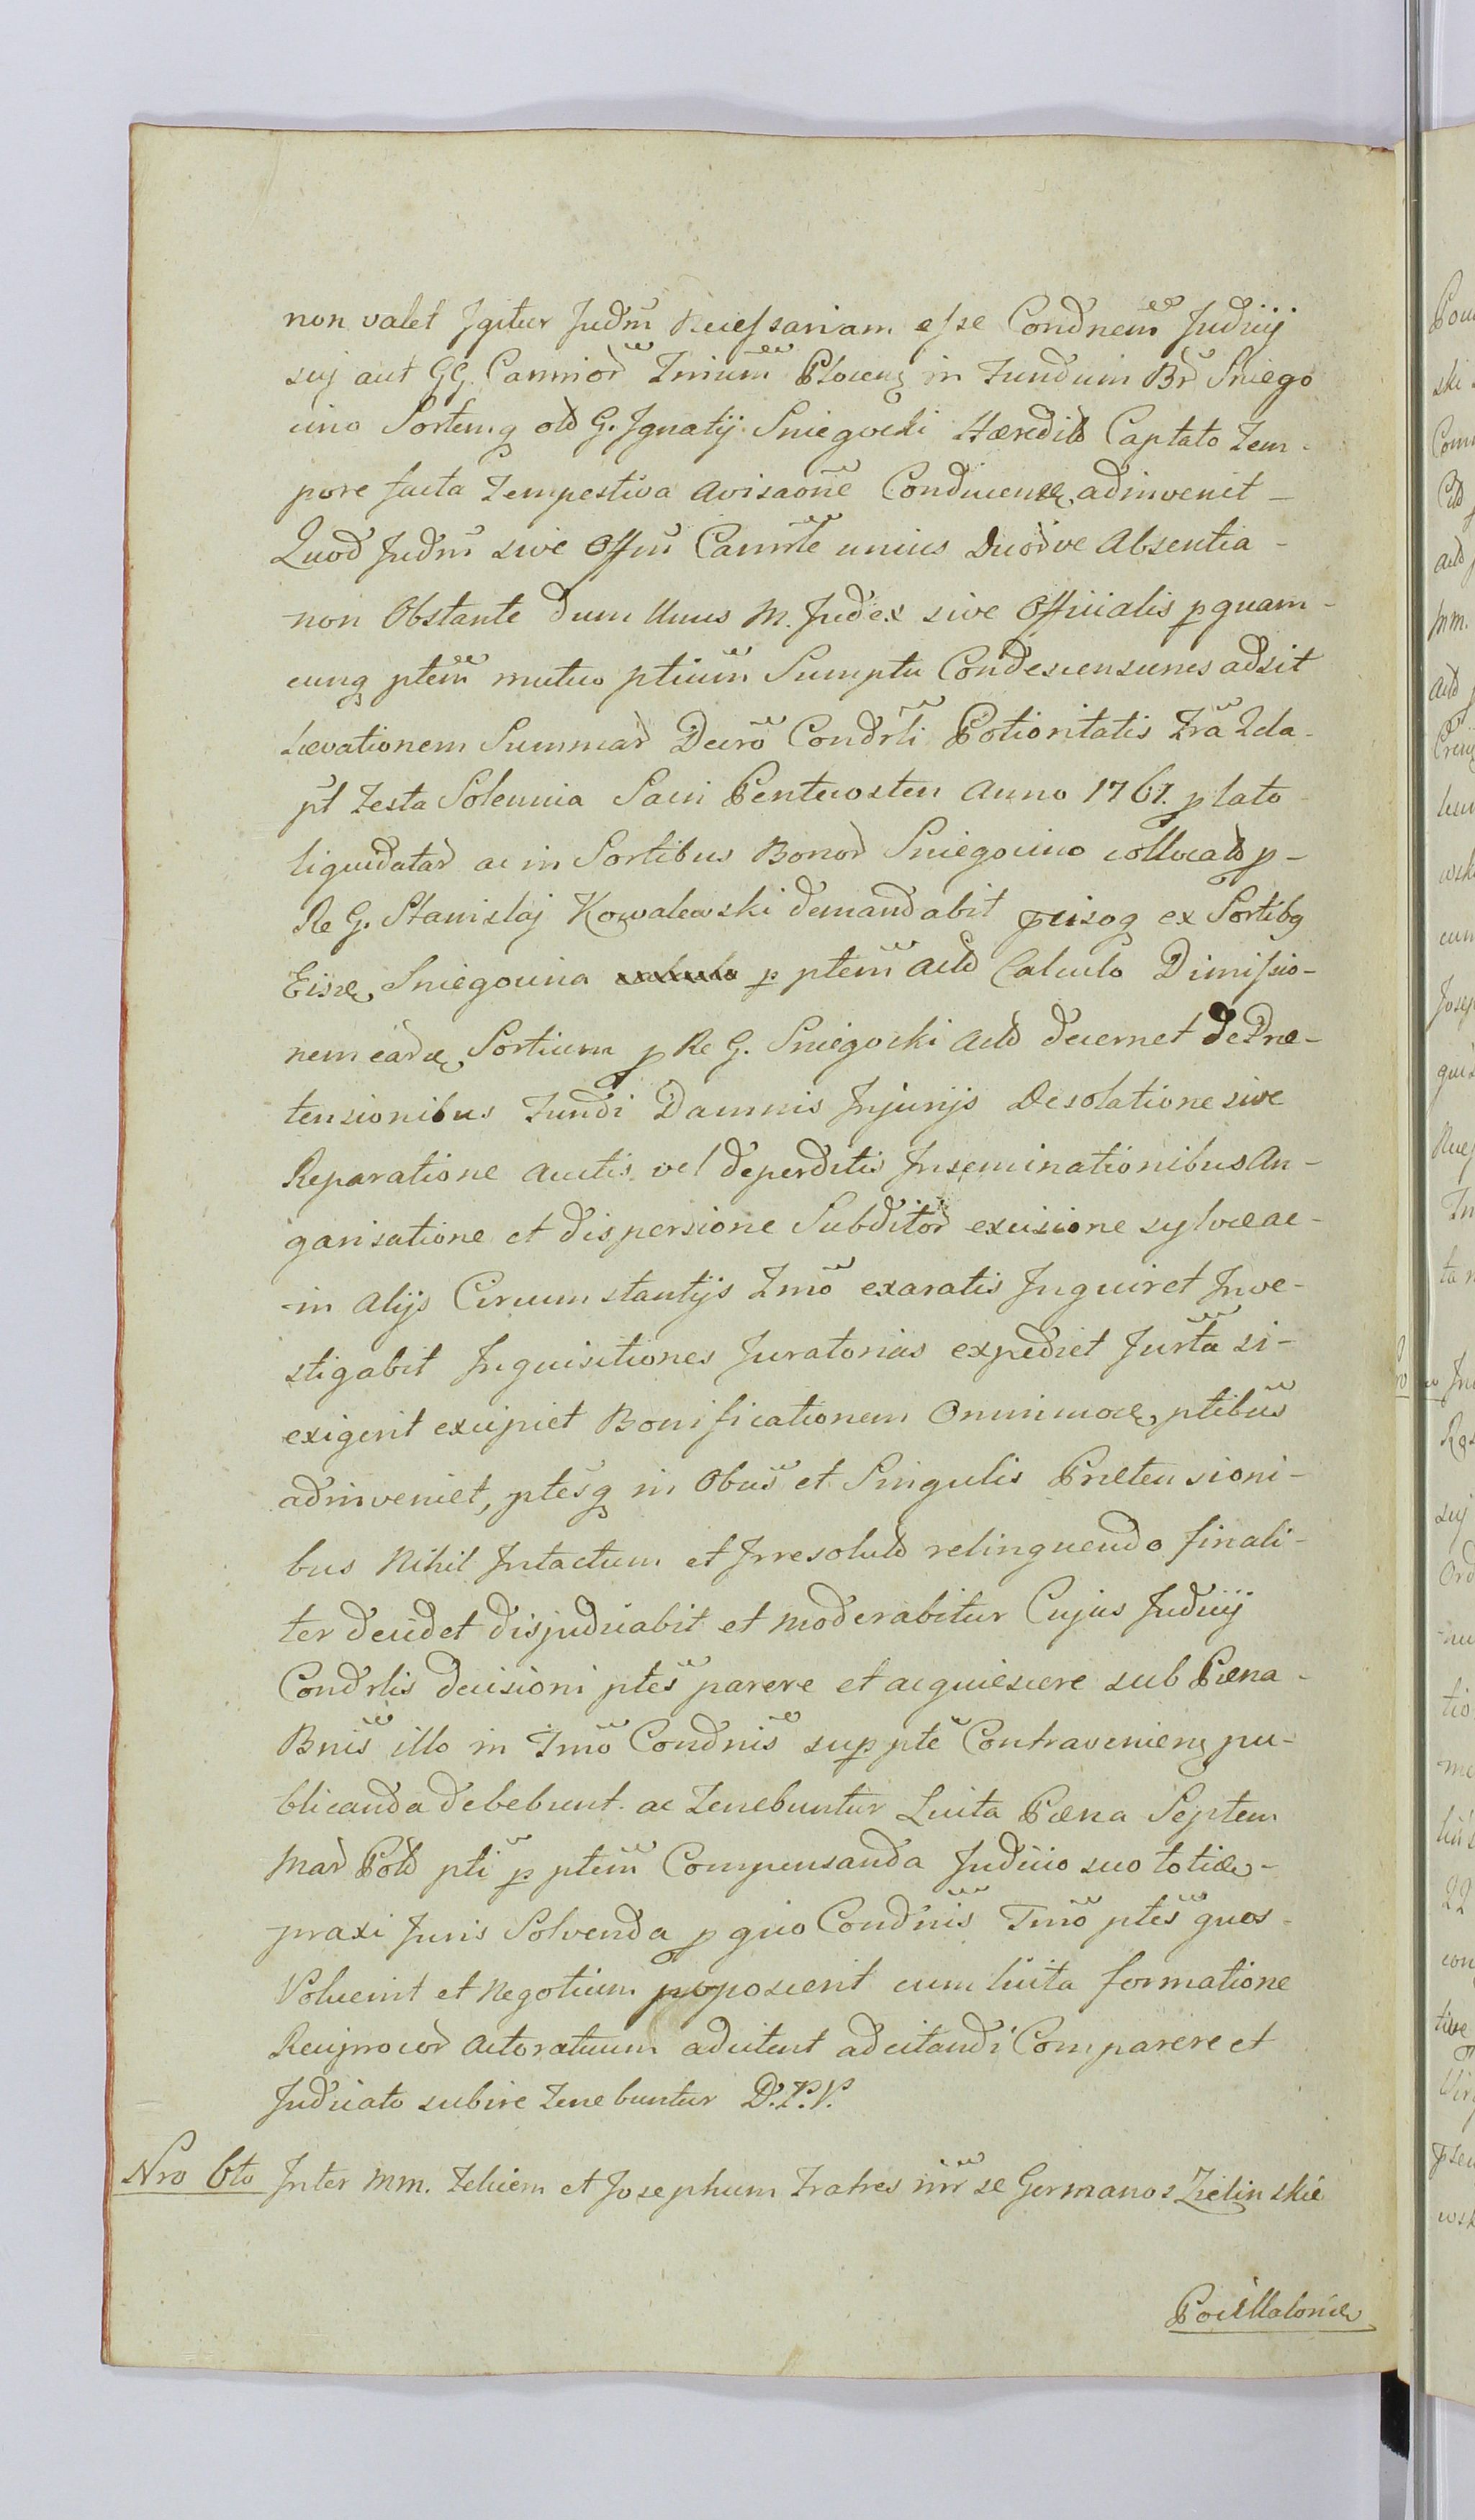 non valet Igitur Judm Necessariam esse Condnem Judicij
sui aut GG. Camrior Trium Plocens in Fundum Br Sniego
cino Sortemq old G. Ignatij Sniegocki Hæredit Captato Tem-
pore facta Tempestiva Avisaone Conducens adinvenit -
Quod Judm sive Offm Camrle unius Duorve Absentia -
non Obstante dum Unus M. Judex sive Officialis p quam-
cunq ptem mutuo ptium Sumptu Condescensurus adsit
Levationem Summar Decro Condrli Potioritatis Fra 2da
pt Festa Solennia Sacri Pentecosten Anno 1761. p lato
liquidatar ac in Sortibus Bonor Sniegocino collocat p -
Re G. Stanislaj Kowalewski demandabit pcisoq ex Sortibq
Eisd Sniegocina p ptem act Calculo Dimissio-
nem eard Sortium p Re G. Sniegocki act decernet de Præ-
tensionibus Fundi Damnis Injurijs Desolatione sive
Reparatione auctis vel deperditis Inseminationibus An-
garisatione et dispersione Subditor excisione sylvæ ac -
in alijs Circumstantijs Tmo exaratis Inquiret Inve-
stigabit Inquisitiones Juratorias expediet Jurta si -
exigerit excipiet Bonificationem Omnimod ptibus
adinveniet, ptesq in Obus et Singulis Prætensioni-
bus Nihil Intactum et Irresolut relinquendo finali-
ter decidet disjudicabit et moderabitur Cujus Judicij
Condrlis decisioni ptes parere et acquiescere sub Pæna -
Bnis illo in Tmo Condnis sup pte Contraveniens pu-
blicanda debebunt ac Tenebuntur Luita Pæna Septem
Mar Pol pti p ptem Compensanda Judicio suo toties -
praxi Juris Solvenda p quo Condnis Tmo ptes quos -
Voluerint et Negotium poposcerit cum luita formatione
Reciprocor Actoratuum adcitent adcitandi Comparere et
Judicato subire Tenebuntur D.P.V.
Nro 6to Inter MM. Felicem et Josephum Fratres inr se Germanos Zielinskie